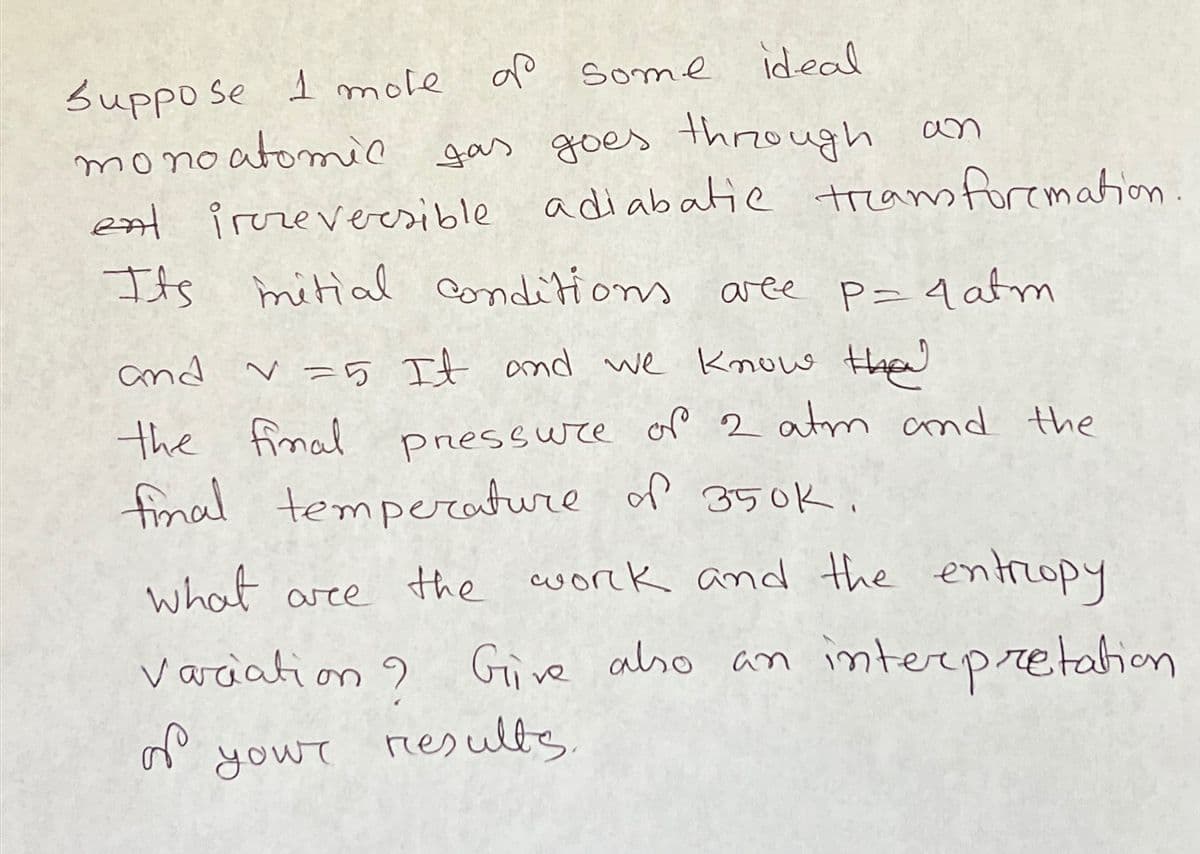 Suppose 1 mole of some ideal
monoatomic gas goes through an
irreversible adiabatic transformation.
Its initial conditions are p = 4 atm
and v = 5 lt and we know the
the final pressure of 2 atm and the
final temperature of 350K.
What are the work and the entropy
variation? Give also an interpretation
of your results.